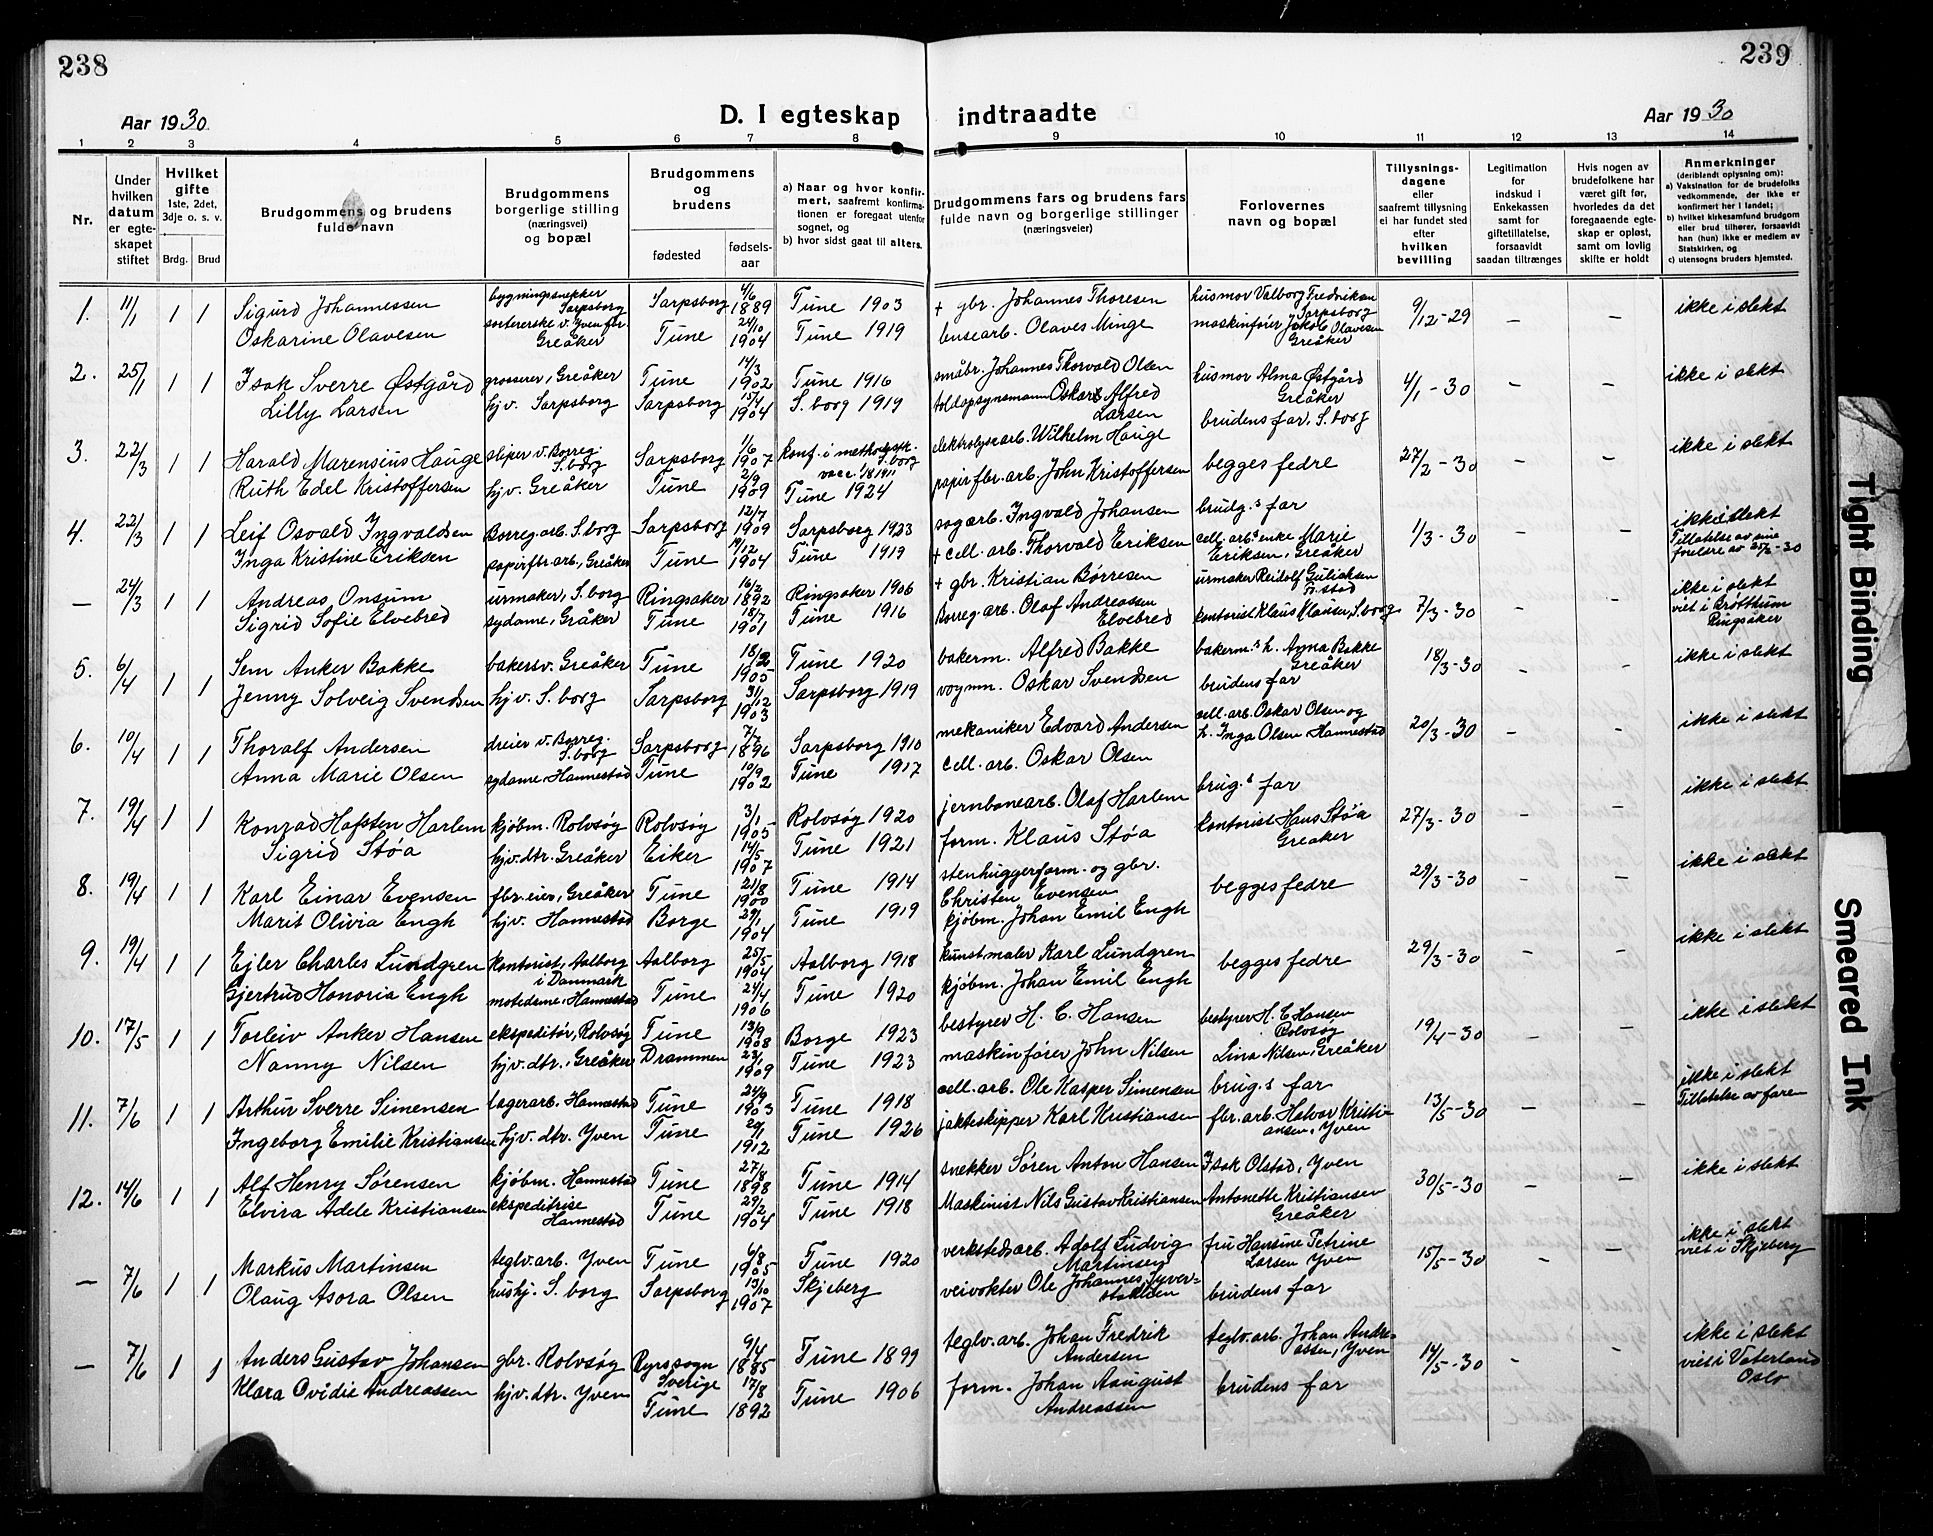 238
239
Aar 1930
D. I egteskap indtraadte
Aar 1930
1 2 3 4 5 6 7 8 9 10 11 12 13 14
Nr.
Under hvilken datum er egteskapet stiftet
Hvilket gifte 1ste, 2det, 3dje o. s. v.
Brdg. Brud
Brudgommens og brudens fulde navn
Brudgommens borgerlige stilling (næringsvei) og bopæl
Brudgommens og brudens
fødested
fødselsaar
a) Naar og hvor konfirmert, saafremt konfirmationen er foregaat utenfor sognet, og
b) hvor sidst gaat til alters.
Brudgommens fars og brudens fars fulde navn og borgerlige stillinger (næringsveier)
Forlovernes navn og bopæl
Tillysningsdagene eller saafremt tillysning ei har fundet sted efter hvilken bevilling
Legitimation for indskud i Enkekassen samt for giftetillatelse, forsaavidt saadan tiltrænges
Hvis nogen av brudefolkene har været gift før, hvorledes da det foregaaende egteskap er opløst, samt om lovlig skifte er holdt
Anmerkninger (deriblandt oplysning om): a) Vaksination for de brudefolks vedkommende, der ikke er konfirmert her i landet; b) hvilket kirkesamfund brudgom eller brud tilhører, forsaavidt han (hun) ikke er medlem av Statskirken, og c) utensogns bruders hjemsted.
1. 11/1 1 1 Sigurd Johannessen bygningssnekker Sarpsborg Sarpsborg 4/6 1889 Tune 1903 + gbr. Johannes Thoresen husmor Valborg Fredriksen Sarpsborg 9/12-29 – – ikke i slekt
Oskarine Olavesen sortererske v. Yvenfbr. Greåker Tune 24/10 1904 Tune 1919 brusearb. Olaves Minge maskinfører Jakob Olavesen Greåker
2. 25/1 1 1 Isak Sverre Østgård grosserer, Greåker Tune 14/3 1902 Tune 1916 småbr. Johannes Thorvald Olsen husmor Alma Østgård Greåker 4/1-30 – – ikke i slekt
Lilly Larsen hjv. Sarpsborg Sarpsborg 15/4 1904 S. borg 1919 toldopsynsmann Oskar Alfred Larsen brudens far, S. borg
3. 22/3 1 1 Harald Marensius Hauge sliper v. Borreg. S. borg Sarpsborg 1/6 1907 konf. i methodistk. S. borg vacc. 1/8 1911 elektrolysearb. Wilhelm Hauge begges fedre 27/2-30 – – ikke i slekt
Ruth Edel Kristoffersen hjv. Greåker Tune 2/9 1909 Tune 1924 papirfbr. arb. John Kristoffersen
4. 22/3 1 1 Leif Osvald Ingvaldsen Borreg. arb. S. borg Sarpsborg 12/7 1909 Sarpsborg 1923 sagarb. Ingvald Johansen brudg.s far 1/3-30 – – ikke i slekt
Inga Kristine Eriksen papirfbr. arb., Greåker Tune 19/12 1904 Tune 1919 + cell. arb. Thorvald Eriksen cell. arb.s enke Marie Eriksen, Greåker Tillatelse av sine forelre
– 24/3 1 1 Andreas Onsum urmaker, S. borg Ringsaker 16/2 1892 Ringsaker 1906 + gbr. Kristian Børresen urmaker Reidolf Guliaksen Fr.stad 7/3-30 – – ikke i slekt
Sigrid Sofie Elvebred sydame, Gråker Tune 18/7 1901 Tune 1916 Borreg arb. Olaf Andreassen Elvebred kontorist Klaus Klausen, S. borg viet i Brøttum Ringsaker
5. 6/4 1 1 Sem Anker Bakke bakersv. Greåker Tune 18/2 1905 Tune 1920 bakerm. Alfred Bakke bakerm.s h. Agna Bakke Greåker 18/3-30 – – ikke i slekt
Jenny Solveig Svendsen hjv. S. borg Sarpsborg 31/12 1903 Sarpsborg 1919 vognm. Oskar Svendsen brudens far
6. 10/4 1 1 Thoralf Andersen dreier v. Borreg. S. borg Sarpsborg 7/7 1896 Sarpsborg 1910 mekaniker Edvard Andersen cell. arb. Oskar Olsen og h. Inga Olsen Hannestad 20/3-30 – – ikke i slekt
Anna Marie Olsen sydame Hannestad Tune 10/9 1902 Tune 1917 cell. arb. Oskar Olsen
7. 19/4 1 1 Konrad Hafsten Harlem kjøbm. Rolvsøy Rolvsøy 3/1 1905 Rolvsøy 1920 jernbanearb. Olaf Harlem brug.s far 27/3-30 – – ikke i slekt
Sigrid Støa hjv. dtr. Greåker Eiker 14/5 1907 Tune 1921 form. Klaus Støa kontorist Hans Støa Greaker
8. 19/4 1 1 Karl Einar Evensen fbr. eier, Greåker Tune 21/8 1900 Tune 1914 stenhuggerform. og gbr. Christen Evensen begges fedre 29/3-30 – – ikke i slekt
Marit Olivia Engh hjv. Hannestad Borge 29/1 1904 Tune 1919 kjøbm. Johan Emil Engh
9. 19/4 1 1 Ejler Charles Lundgren kontorist, Aalborg i Danmark Aalborg 25/5 1904 Aalborg 1918 kunstmaler Karl Lundgren begges fedre 29/3-30 – – ikke i slekt
Gjertrud Honoria Engh motedame, Hannestad Tune 24/4 1906 Tune 1920 kjøbm. Johan Emil Engh
10. 17/5 1 1 Torleiv Anker Hansen ekspeditør, Rolvsøy Tune 13/9 1908 Borge 1923 bestyrer H. C. Hansen bestyrer H. C. Hansen Rolvsøy 19/4-30 – – ikke i slekt
Nanny Nilsen hjv. dtr., Greåker Drammen 23/1 1909 Tune 1923 maskinfører John Nilsen Lina Nilsen, Greåker
11. 7/6 1 1 Arthur Sverre Simensen lagerarb. Hannestad Tune 24/9 1903 Tune 1918 cell. arb. Ole Kasper Simensen brug.s far 13/5-30 – – ikke i slekt
Ingeborg Emilie Kristiansen hjv. dtr. Yven Tune 29/1 1912 Tune 1926 jakteskipper Karl Kristiansen fbr. arb. Halvor Kristiansen, Yven Tillatelse av faren
12. 14/6 1 1 Alf Henry Sørensen kjøbm. Hannestad Tune 27/8 1898 Tune 1914 snekker Søren Anton Hansen Isak Olstad, Yven 30/5-30 – – ikke i slekt
Elvira Adele Kristiansen ekspeditrise Hannestad Tune 29/2 1904 Tune 1918 Maskinist Nils Gustav Kristiansen Antonette Kristiansen Greåker
– 7/6 1 1 Markus Martinsen teglv. arb. Yven Tune 6/8 1905 Tune 1920 verkstedsarb. Adolf Ludvig Martinsen fru Hansine Petrine Larsen Yven 15/5-30 – – ikke i slekt
Olaug Asora Olsen hushj. S. borg Sarpsborg 13/10 1907 Skjeberg veivokter Ole Johannes Syverstakken brudens far viet i Skjeberg
– 7/6 1 1 Anders Gustav Johansen gbr. Rolvsøy Ryrs sogn Sverige 9/4 1885 Tune 1899 teglv. arb. Johan Fredrik Andersen teglv. arb. Johan Andreassen, Yven 14/5-30 – – ikke i slekt
Klara Ovidie Andreassen hjv. dtr. Yven Tune 17/8 1892 Tune 1906 form. Johan Aaugust Andreassen brudens far viet i Vaterland Oslo
Tight Binding
Smeared Ink